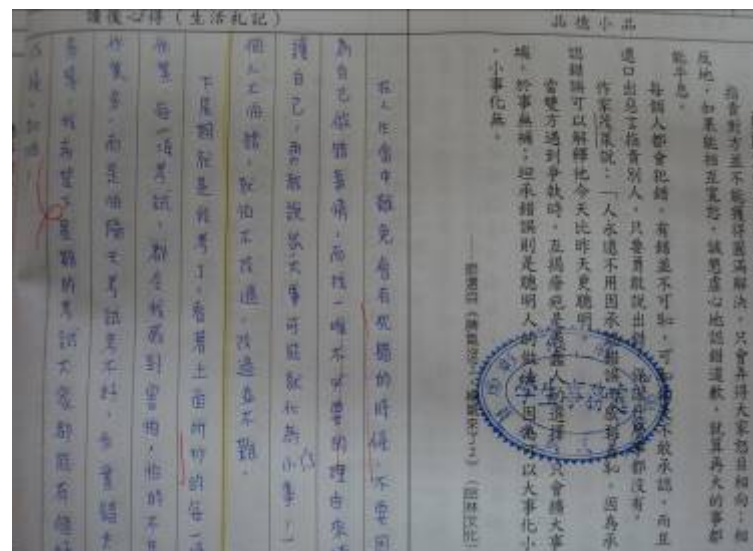 品德小品
指責對方並不能獲得圓滿解決，只會弄得大家怒目相向；相
反地，如果能相互寬恕，誠懇虛心地認錯道歉，就算再大的事都
能平息。
每個人都會犯錯，有錯並不可恥，可不敢承認，而且
還口出惡言指責別人，只要勇敢說出錯都沒有。
作家說：「人永遠不用因承認錯誤而感到羞恥，因為承
認錯誤可以解釋他今天比昨天更聰明。」
當雙方遇到爭執時，互揭瘡疤是愚蠢人的選擇，只會擴大事
端，於事無補；坦承錯誤則是聰明人的做法，因為可以大事化小
、小事化無。
讀後心得（生活札記）
在人生當中難免會有犯錯的時候，不要因
為自己做錯事情，而找一堆不必要的理由來
護自己，勇敢說出大事可能就化為小事！一
個人不怕錯，就怕不改過，改過並不難。
下星期就是段考了，看著上面所抄的每一項
作業，每一項考試，都令我感到害怕，怕的不是
作業多，而是怕隔天考試考不好，
我希望下星期的考試大家都能有個好
成績，加油！